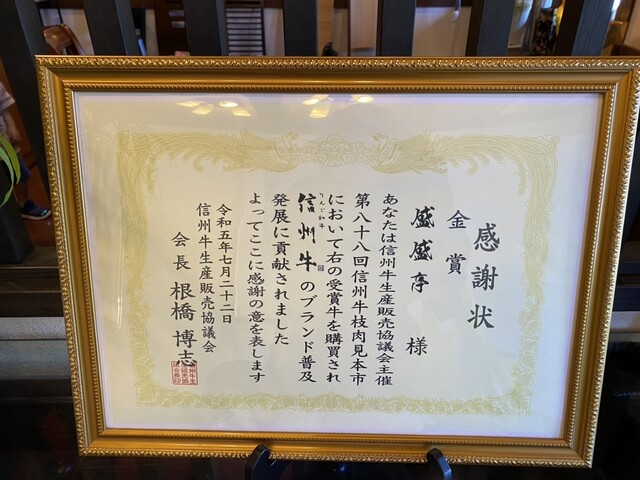 感謝状
金賞
盛盛亭 様
あなたは信州牛生産販売協議会主催
第八十八回信州牛枝肉見本市
において右の受賞牛を購買され
りんご和牛
信州牛のブランド普及
発展に貢献されました
よってここに感謝の意を表します
令和五年七月二十二日
信州牛生産販売協議会
会長 根橋博志